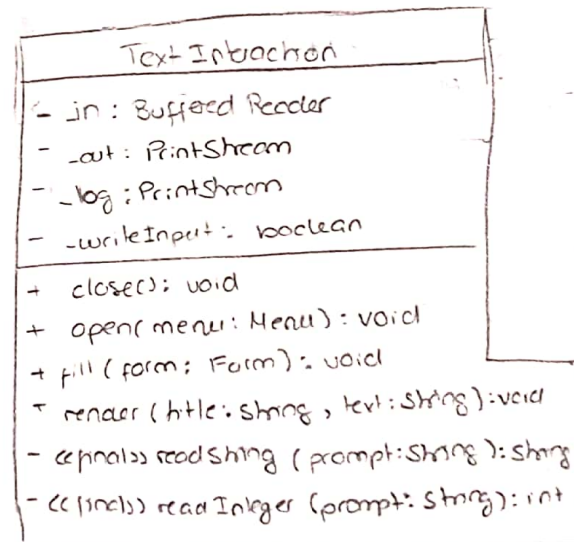 Text Interaction
- _in : Buffered Reader
- _out : PrintStream
- _log : PrintStream
- _writeInput : boolean
+ close() : void
+ open( menu : Menu ) : void
+ fill ( form : Form ) : void
+ render ( title : String , text : String ) : void
- <<final>> readString ( prompt : String ) : String
- <<final>> readInteger ( prompt : String ) : int